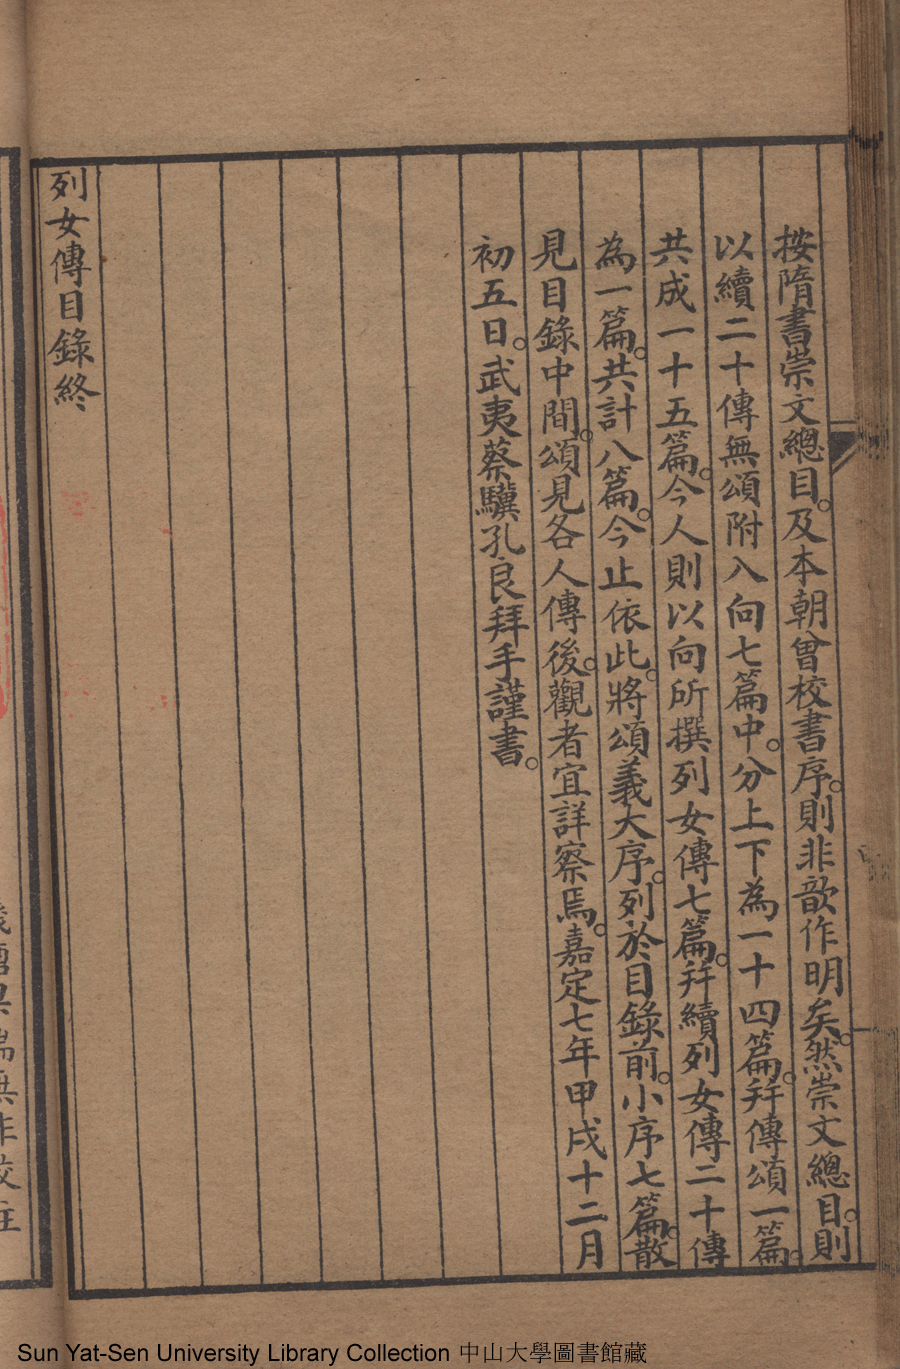 按隋書崇文總目。及本朝曾校書序。則非歆作明矣。然崇文總目。則
以續二十傳無頌附入向七篇中。分上下為一十四篇。并傳頌一篇。
共成一十五篇。今人則以向所撰列女傳七篇。并續列女傳二十傳
為一篇。共計八篇。今止依此。將頌義大序。列於目錄前。小序七篇。散
見目錄中間。頌見各人傳後。觀者宜詳察焉。嘉定七年甲戌十二月
初五日。武夷蔡驥孔良拜手謹書。
列女傳目錄終
端無非校注
Sun Yat-Sen University Library Collection 中山大學圖書館藏